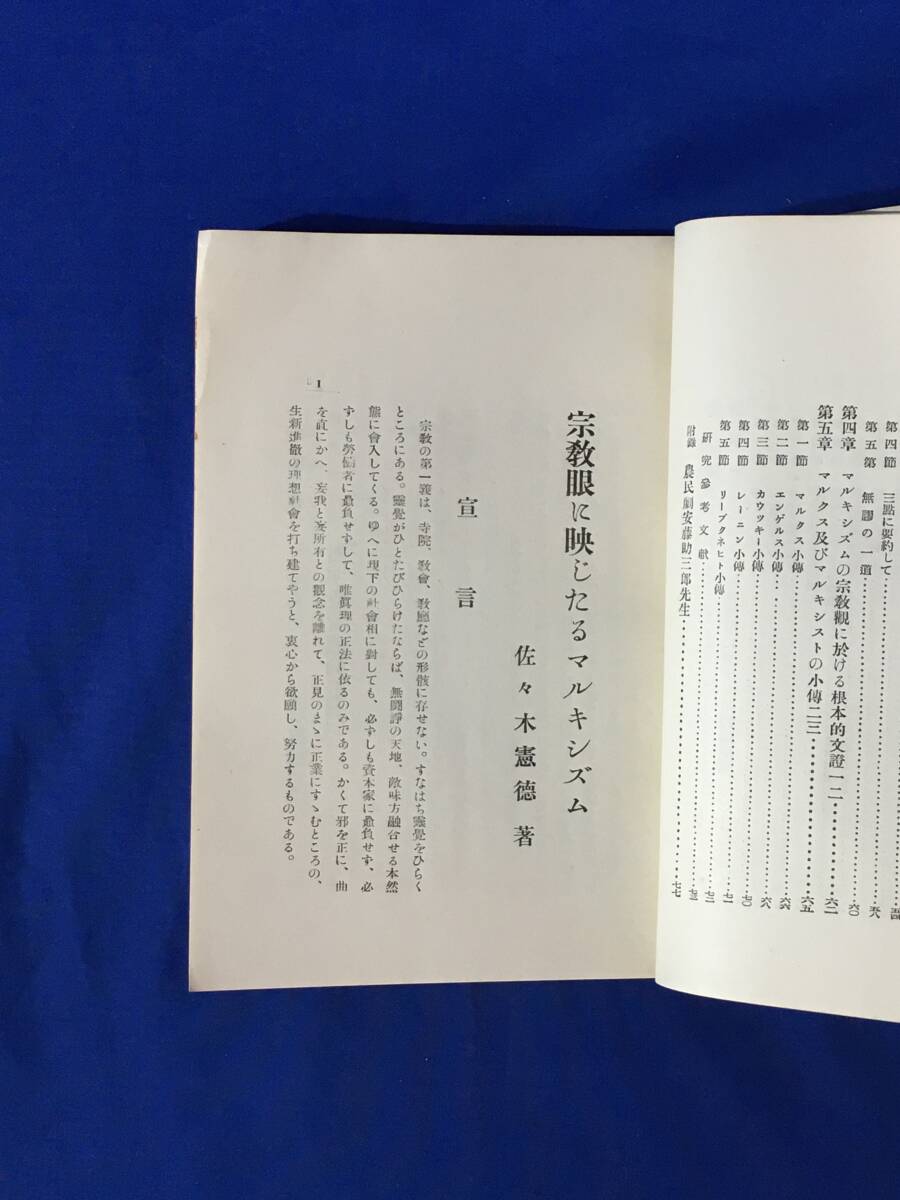 第四節　三點に要約して
第五第　無謬の一道…………………六〇
第四章　マルキシズムの宗教觀に於ける根本的文證一二………六二
第五章　マルクス及びマルキシストの小傳二三…………六五
第一節　マルクス小傳…………………六五
第二節　エンゲルス小傳…………………六六
第三節　カウツキー小傳…………………六八
第四節　レーニン小傳…………………七〇
第五節　リープクネヒト小傳…………………七一
研究參考文獻…………………七三
附錄　農民劇安藤助三郎先生…………………七七
宗教眼に映じたるマルキシズム
佐々木憲德 著
宣言
宗教の第一義は、寺院、教會、教廳などの形骸に存せない。すなはち靈覺をひらく
ところにある。靈覺がひとたびひらけたならば、無鬪諍の天地、敵味方融合せる本然
態に會入してくる。ゆへに現下の社會相に對しても、必ずしも資本家に贔負せず、必
ずしも勞働者に贔負せずして、唯眞理の正法に依るのみである。かくて邪を正に、曲
を直にかへ、妄我と妄所有との觀念を離れて、正見のまゝに正業にすゝむところの、
生新進徹の理想社會を打ち建てやうと、衷心から欲願し、努力するものである。
1